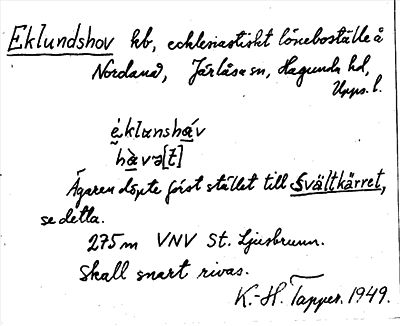 Eklundshov hb, ecklesiastiskt löneboställe å
Nordanå, Järlåsa sn, Hagunda hd,
Upps. l.
éklunshàv
hàvə[t]
Ägaren döpte först stället till Svältkärret,
se detta.
275 m VNV St. Ljusbrunn.
Skall snart rivas.
K.-H. Tapper. 1949.